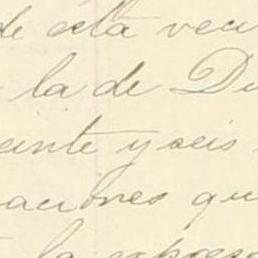 de esta veci
la de Du
einte y seis
aciones qu
la espres